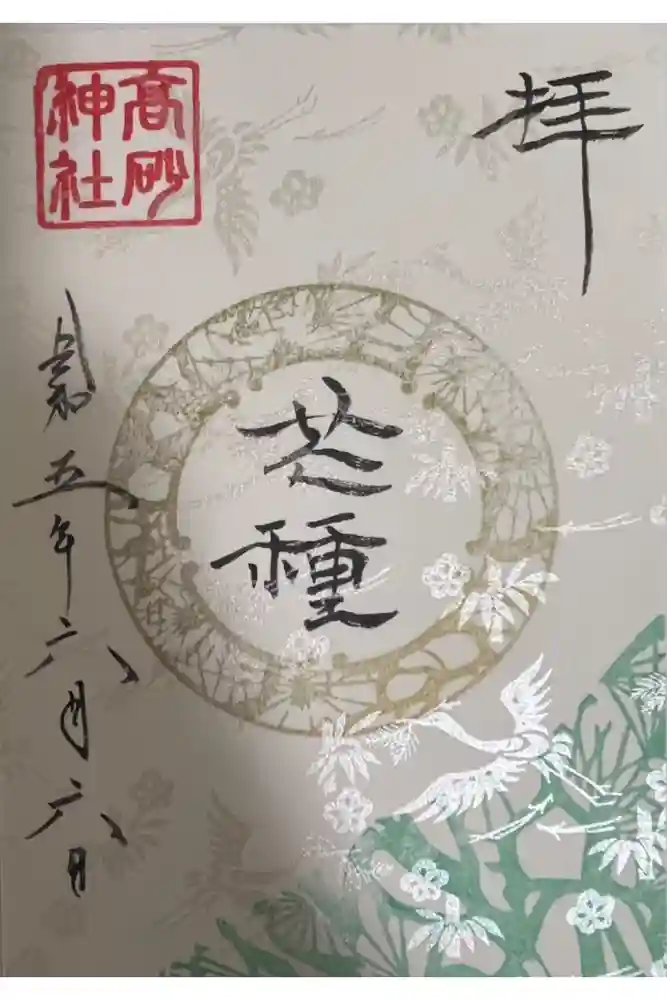 拝
芒種
令和五年六月六日
高砂
神社